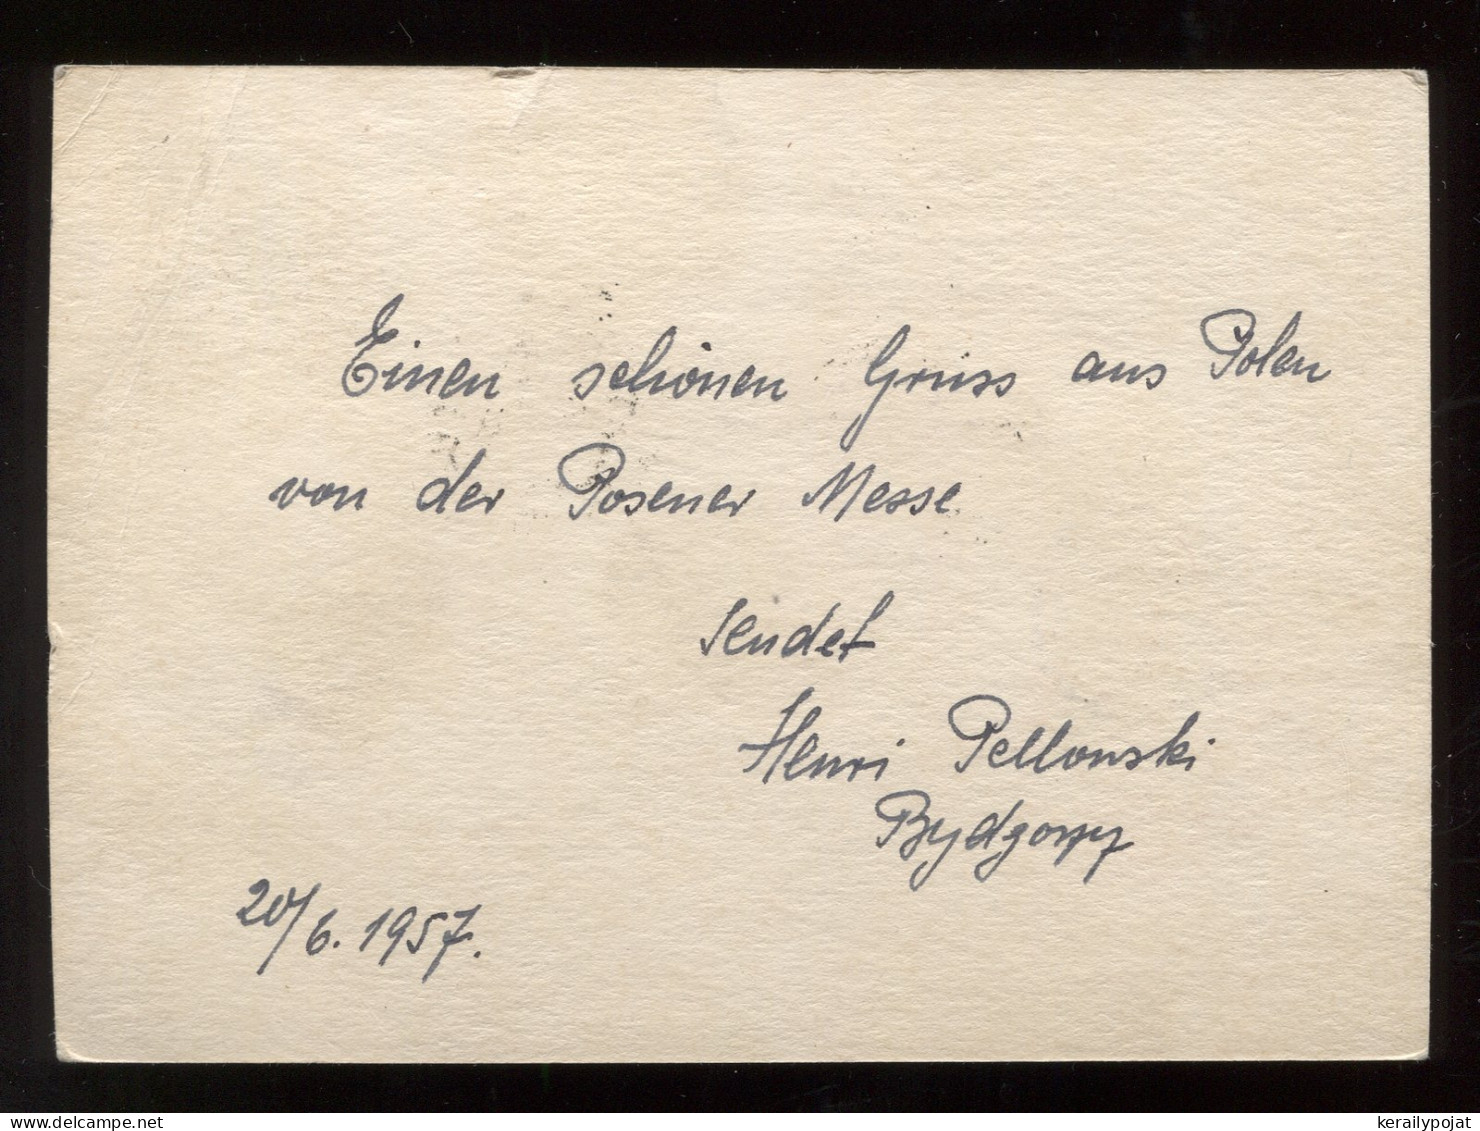 Einen schönen Gruss aus Polen
von der Posener Messe
sendet
Henri Pellowski
Bydgoszcz
20/6.1957.
kerailypojat